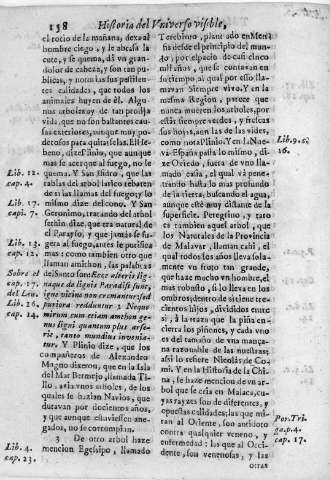 158 Historia del Vniverso visble,
el rocio de la mañana, dexa al
hombre ciego, y le abrasa la
cute, y se quema, dà vn gran
dolor de cabeça, y son tan
publicas, y notorias sus pestilen
ciales calidades, que todos los
animales huyen dèl. Algu
nos arboles ay de tan prodigio
vida, que no son bastantes cau
sas exteriores, aunque muy po
derosas para quitarsela. El He
beno, dize Plinio, que aunque
mas se acerque al fuego, no se
Lib. 12. quema. Y San Isidro, que las
cap. 4. tablas del arbol larice rebaten
de si en las llamas del fuego, y lo
Lib. 17. mismo dize del cono. Y San
capi. 7. Geronimo, tratando del arbol
sethin dize, que era natural de
el Parayso, y que jamàs se que
Lib. 13. gera al fuego, antes le purifica
cap. 12. mas: como tambien otro que
llaman amithon, las palabras
Sobre el del Santo son: Ecce alteris lig
cap. 17. naque de lignis Paradisi sunt,
del Leu. igne vicino non cremantur, sed
Lib. 16. puriora redduntur: Neque
cap. 14. mirum cum etiam amthon ge
nus ligni quantum plus arse
rit, tanto mundius invenia-
tur. Y Plinio dize, que los
compañeros de Alexandro
Magno dixeron, que en la Isla
del Mar Bermejo, llamada Ti
llo, avia vnos arboles, de los
quales se hazian Navios, que
duravan por docientos años,
y que aunque estuviessen ane
gados, no se corrompian.
3 De otro arbol haze
Lib. 4. mencion Egesipo, llamado
cap. 23.
Terebinto, plantado en Menfi
sis desde el principio del mun-
do, por espacio de casi cinco
mil años, que se contavan en
su tiempo, al qual por esso lla-
mavan Siempre vivo. Y en la
mesma Region, parece que
nunca mueren los arboles, y
sus hojas, son las de las vides,
como nota Plinio. Y en la Nueva Lib. 9.
España passa lo mismo, di- 16.
ze Oviedo, fuera de vno lla-
mado caña, el qual và pene-
trando hasta lo mas profundo
de la tierra, buscando el agua,
aunque estè muy distante de la
superficie. Peregrino, y raro
es tambien aquel arbol, que
los Naturales de la Provincia
de Malavar, llaman cabi, el
qual todos los años lleva sola-
mente vn fruto tan grande,
que haze mucho vn hombre, el
mas robusto, si lo lleva en los
ombros; dentro de si tiene tre-
cientos hijos, divididos entre
si, à la traza que la piña en-
cierra los piñones, y cada vno
es del tamaño de vna mança-
na razonable de las nuestras;
assi lo refiere Nicolas de Co-
mi. Y en la Historia de la Chi-
na, se haze mencion de vn ar-
bol que se cria en Malaca, cu-
yas rayzes son de diferentes, y
opuestas calidades; las que mi-
ran al Oriente, son antidoto Por. Tri
contra qualquier veneno, y ga, p. 4.
enfermedad: las que al Occi- cap. 17.
dente, son venenosas, y las
otras